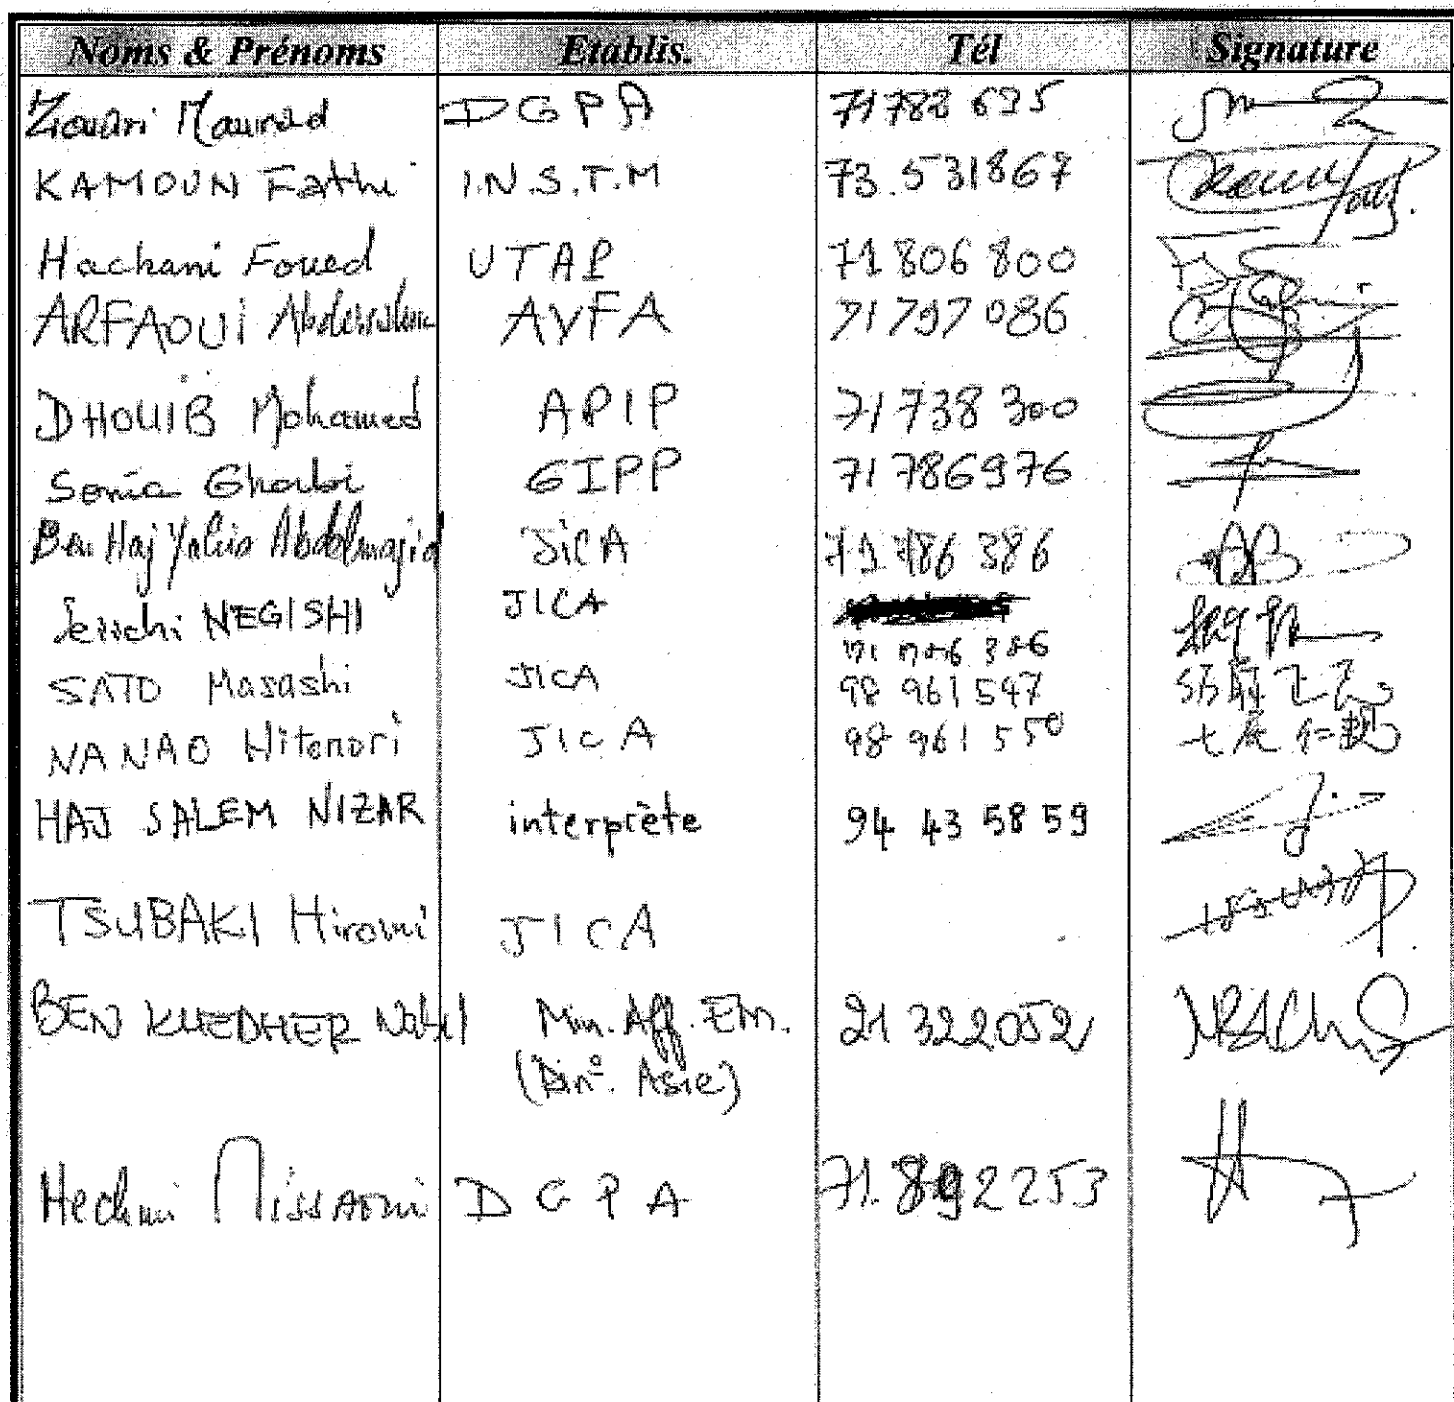 Noms & Prénoms Etablis. Tél Signature
Zouari Mourad DGPA 71788 695
KAMOUN Fathi I.N.S.T.M 73.531867
Hachani Foued UTAP 71 806 800
ARFAOUI AVFA 71 797 086
DHOUIB Mohamed APIP 71 738 300
Sonia Gharbi GIPP 71 786976
Ben Haj Yahia Abdelmajid JiCA 71 786 386
Seiichi NEGISHI JICA
71 786 386
SATO Masashi JICA 98 961 547
NANAO Hitonori JICA 98 961 550
HAJ SALEM NIZAR interprète 94 43 58 59
TSUBAKI Hiromi JICA
BEN KHEDHER Nabil Min. Aff. Em. 21 322052
(Din°. Asie)
Hechmi Missaoui DGPA 71.892253